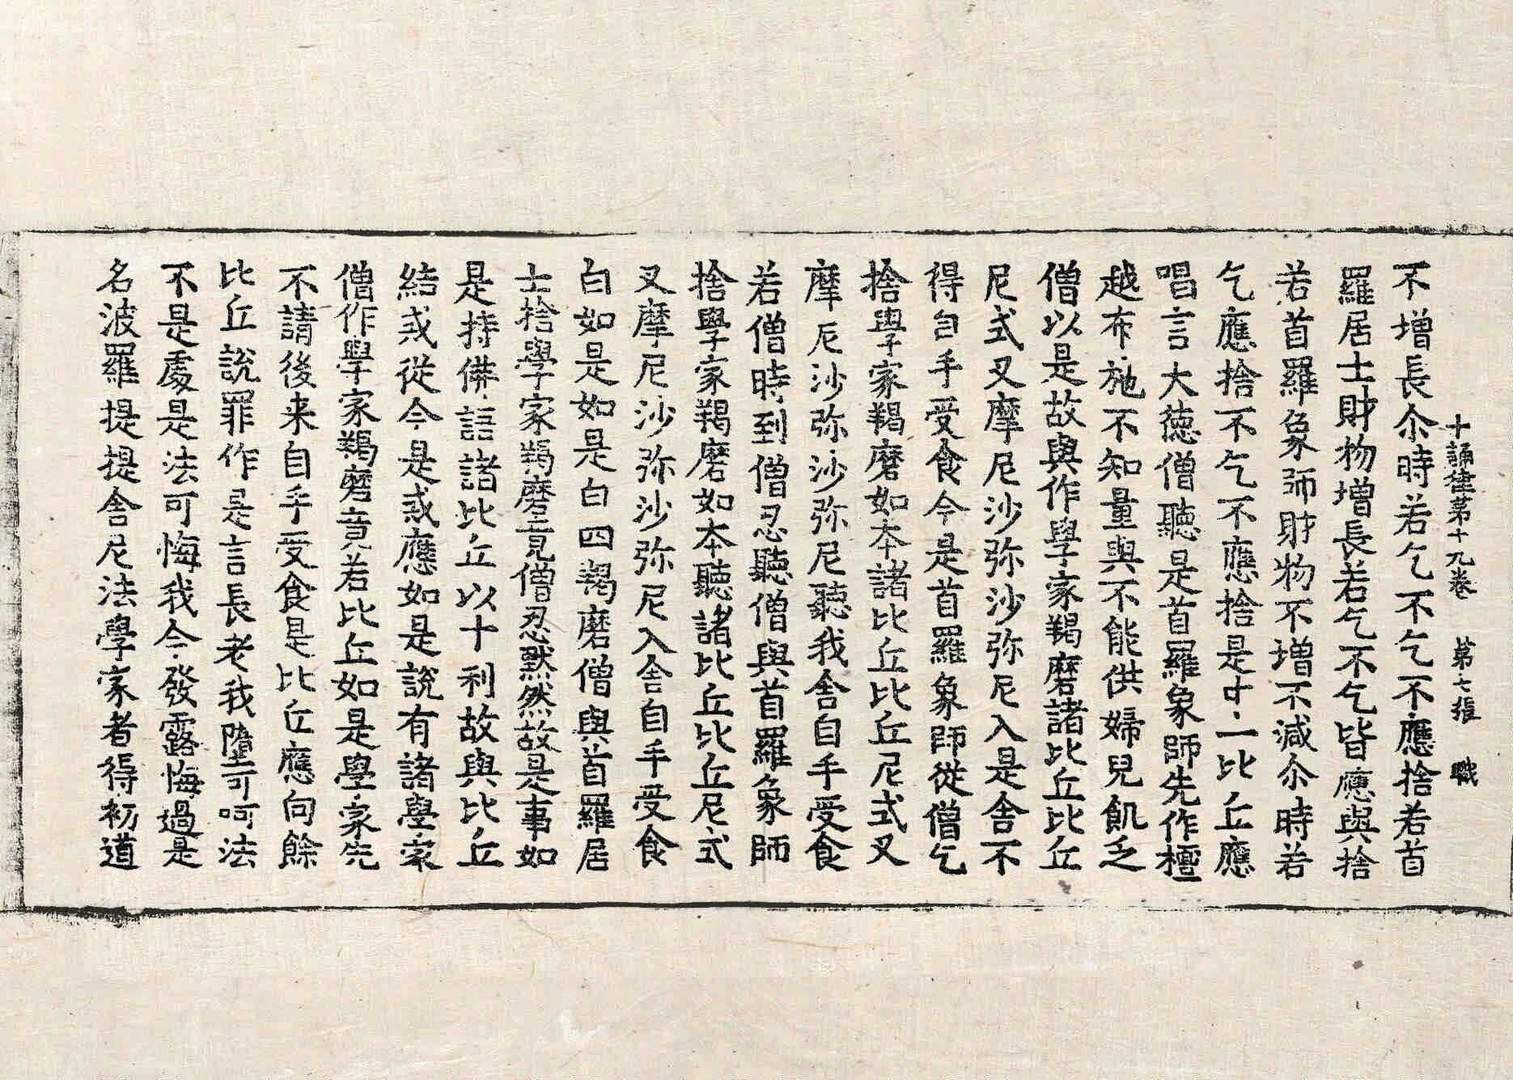 十誦律苐十九卷　苐七張　職
不增長尒時若乞不乞不應捨若首
羅居士財物增長若乞不乞皆應與捨
若首羅象師財物不增不減尒時若
乞應捨不乞不應捨是中一比丘應
唱言大德僧聽是首羅象師先作檀
越布施不知量與不能供婦兒飢乏
僧以是故與作學家羯磨諸比丘比丘
尼式叉摩尼沙弥沙弥尼入是舍不
得自手受食今是首羅象師從僧乞
捨學家羯磨如本諸比丘比丘尼式叉
摩尼沙弥沙弥尼聽我舍自手受食
若僧時到僧忍聽僧與首羅象師
捨學家羯磨如本聽諸比丘比丘尼式
叉摩尼沙弥沙弥尼入舍自手受食
白如是如是白四羯磨僧與首羅居
士捨學家羯磨竟僧忍默然故是事如
是持佛語諸比丘以十利故與比丘
結戒從今是戒應如是說有諸學家
僧作學家羯磨竟若比丘如是學家先
不請後来自手受食是比丘應向餘
比丘說罪作是言長老我墮可呵法
不是處是法可悔我今發露悔過是
名波羅提提舍尼法學家者得初道